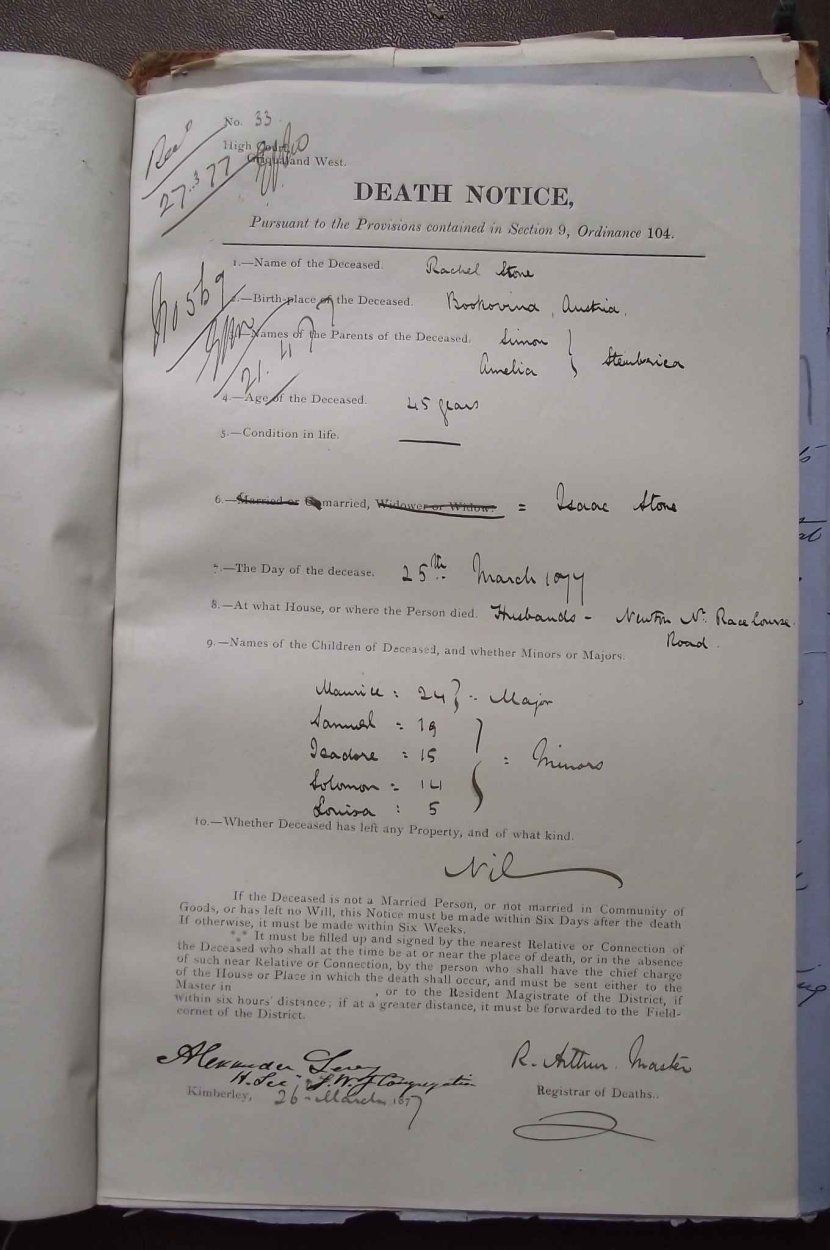 No. 33
High Court,
Griqualand West.
27.3.77
DEATH NOTICE,
Pursuant to the Provisions contained in Section 9, Ordinance 104.
1.—Name of the Deceased. Rachel Stone
No 569
2.—Birth-place of the Deceased. Bookovina, Austria.
3.—Names of the Parents of the Deceased. Simon
Amelia }
21. 4. 77
4.—Age of the Deceased. 45 years
5.—Condition in life. ———
6.—Married or Unmarried, Widower or Widow. = Isaac Stone
7.—The Day of the decease. 25th March 1877
8.—At what House, or where the Person died. Husbands - Newton Nr. Race Course
Road.
9.—Names of the Children of Deceased, and whether Minors or Majors.
Maurice : 24 } .. Major
Samuel = 19
Isadore : 15 } : Minors
Solomon = 14
Louisa : 5
10.—Whether Deceased has left any Property, and of what kind.
Nil
If the Deceased is not a Married Person, or not married in Community of
Goods, or has left no Will, this Notice must be made within Six Days after the death
If otherwise, it must be made within Six Weeks.
*.* It must be filled up and signed by the nearest Relative or Connection of
the Deceased who shall at the time be at or near the place of death, or in the absence
of such near Relative or Connection, by the person who shall have the chief charge
of the House or Place in which the death shall occur, and must be sent either to the
Master in , or to the Resident Magistrate of the District, if
within six hours' distance; if at a greater distance, it must be forwarded to the Field-
cornet of the District.
Alexander Levy R. Arthur. Master
H. Sec: G.W.J. Congregation
Kimberley, 26 - March 1877 Registrar of Deaths..